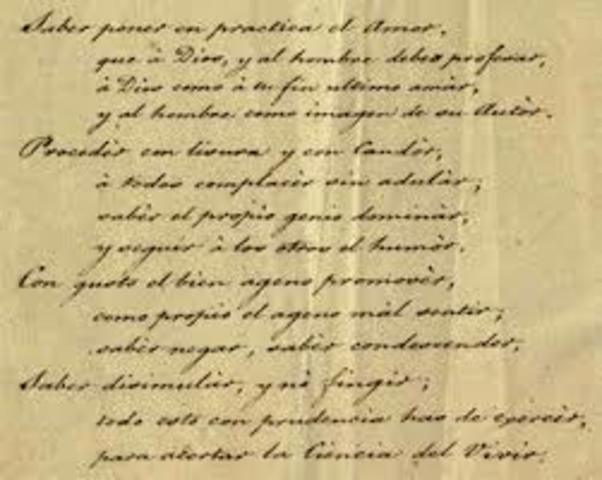 Saber poner en practica el Amor,
que à Dios, y al hombre debes profesar,
à Dios como à tu fin ultimo amàr,
y al hombre como imagen de su Autòr.
Procedèr con lisura y con Candòr,
à todos complacèr sin adulàr;
sabèr el propio genio dominàr,
y seguir à los otros el humòr.
Con gusto el bien ageno promovèr,
como propio el ageno màl sentir;
sabèr negar, sabèr condescender,
Saber disimulàr, y nò fingir;
todo esto con prudencia has de exercèr,
para acertar la Ciencia del Vivir.